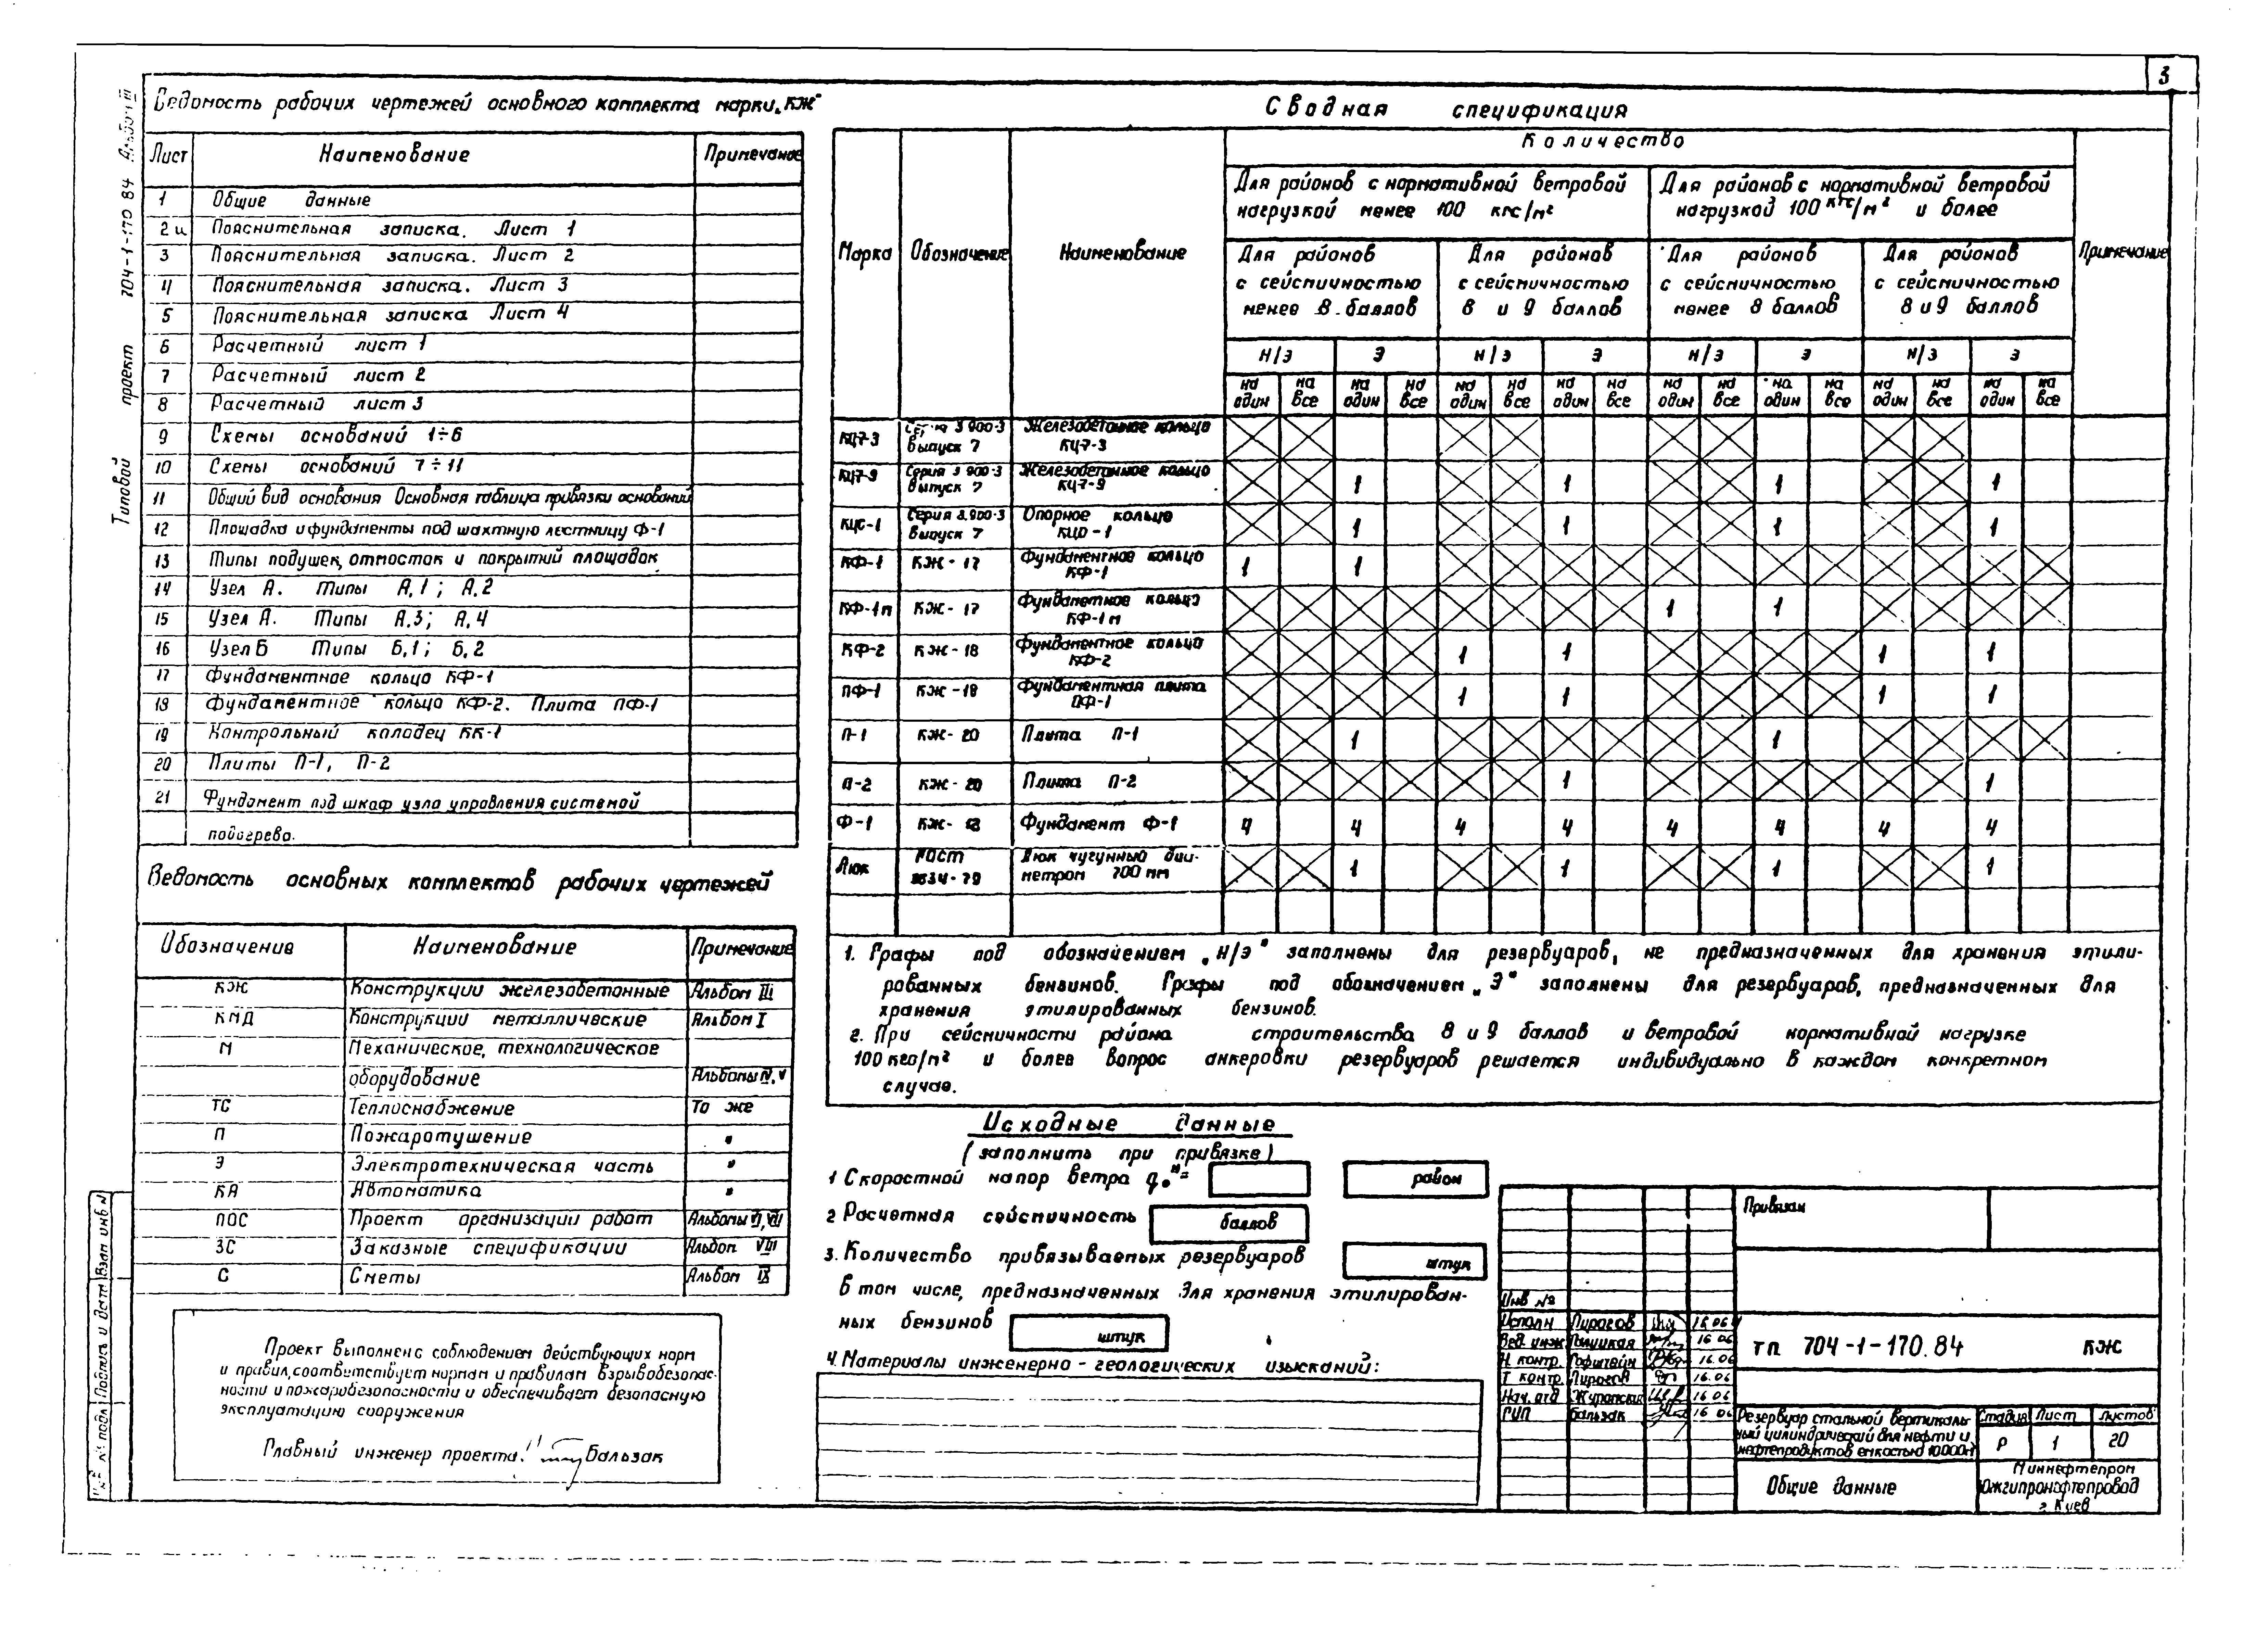 3
Типовой проект 704-1-170 84 Альбом III
Ведомость рабочих чертежей основного комплекта марки „КЖ"
Лист Наименование Примечание
1 Общие данные
2 и Пояснительная записка. Лист 1
3 Пояснительная записка. Лист 2
4 Пояснительная записка. Лист 3
5 Пояснительная записка Лист 4
6 Расчетный лист 1
7 Расчетный лист 2
8 Расчетный лист 3
9 Схемы оснований 1÷6
10 Схемы оснований 7÷11
11 Общий вид основания Основная таблица привязки оснований
12 Площадка и фундаменты под шахтную лестницу Ф-1
13 Типы подушек, отмосток и покрытий площадок
14 Узел А. Типы А.1; А.2
15 Узел А. Типы А.3; А.4
16 Узел Б Типы Б.1; Б.2
17 Фундаментное кольцо КФ-1
18 Фундаментное кольцо КФ-2. Плита ПФ-1
19 Контрольный колодец КК-1
20 Плиты П-1, П-2
21 Фундамент под шкаф узла управления системой
подогрева.
Ведомость основных комплектов рабочих чертежей
Обозначение Наименование Примечание
КЖ Конструкции железобетонные Альбом III
КМД Конструкции металлические Альбом I
М Механическое, технологическое
оборудование Альбомы IV, V
ТС Теплоснабжение То же
П Пожаротушение "
Э Электротехническая часть "
КА Автоматика "
ПОС Проект организации работ Альбомы VI, VII
ЗС Заказные спецификации Альбом VIII
С Сметы Альбом IX
Проект выполнен с соблюдением действующих норм
и правил, соответствует нормам и правилам взрывобезопас-
ности и пожаробезопасности и обеспечивает безопасную
эксплуатацию сооружения
Главный инженер проекта Бальзак
Сводная спецификация
Марка Обозначение Наименование Количество Примечание
Для районов с нормативной ветровой нагрузкой менее 100 кгс/м² Для районов с нормативной ветровой нагрузкой 100 кгс/м² и более
Для районов с сейсмичностью менее 8 баллов Для районов с сейсмичностью 8 и 9 баллов Для районов с сейсмичностью менее 8 баллов Для районов с сейсмичностью 8 и 9 баллов
н/э э н/э э н/э э н/э э
на один на все на один на все на один на все на один на все на один на все на один на все на один на все на один на все
КЦ7-3 Серия 3 900-3 Выпуск 7 Железобетонное кольцо КЦ7-3
КЦ7-9 Серия 3 900-3 Выпуск 7 Железобетонное кольцо КЦ7-9 1 1 1 1
КЦО-1 Серия 3.900-3 Выпуск 7 Опорное кольцо КЦО-1 1 1 1 1
КФ-1 КЖ-17 Фундаментное кольцо КФ-1 1 1
КФ-1м КЖ-17 Фундаметное кольцо КФ-1м 1 1
КФ-2 КЖ-18 Фундаментное кольцо КФ-2 1 1 1 1
ПФ-1 КЖ-18 Фундаментная плита ПФ-1 1 1 1 1
П-1 КЖ-20 Плита П-1 1 1
П-2 КЖ-20 Плита П-2 1 1
Ф-1 КЖ- Фундамент Ф-1 4 4 4 4 4 4 4 4
Люк ГОСТ 3634-79 Люк чугунный диа-метром 700 мм 1 1 1 1
1. Графы под обозначением „н/э" заполнены для резервуаров, не предназначенных для хранения этили-
рованных бензинов. Графы под обозначением „Э" заполнены для резервуаров, предназначенных для
хранения этилированных бензинов.
2. При сейсмичности района строительства 8 и 9 баллов и ветровой нормативной нагрузке
100 кгс/м² и более вопрос анкеровки резервуаров решается индивидуально в каждом конкретном
случае.
Исходные данные
(заполнить при привязке)
1 Скоростной напор ветра q₀ᴴ= район
2 Расчетная сейсмичность баллов
3. Количество привязываемых резервуаров штук
в том числе, предназначенных для хранения этилирован-
ных бензинов штук
4. Материалы инженерно-геологических изысканий:
Привязан
Инв №
Исполн Пирогов 16 06
Вед. инж 16 06
Н контр. Гофштейн 16.06
Т контр. Пирогов 16.06
Нач. отд 16 06
ГИП Бальзак 16 06
ТП 704-1-170.84 КЖ
Резервуар стальной вертикаль-
ный цилиндрический для нефти и
нефтепродуктов емкостью 10000м³
Стадия Лист Листов
Р 1 20
Общие данные
Миннефтепром
Южгипронефтепровод
г. Киев
Инв № подл Подпись и дата Взам инв №